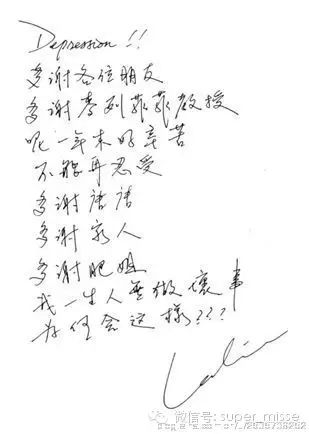 Depression!!
多谢各位朋友
多谢麥列菲菲教授
呢一年来好辛苦
不能再忍受
多谢唐唐
多谢家人
多谢肥姐
我一生人無做壞事
為何会这樣???
Leslie
微信号: super_misse